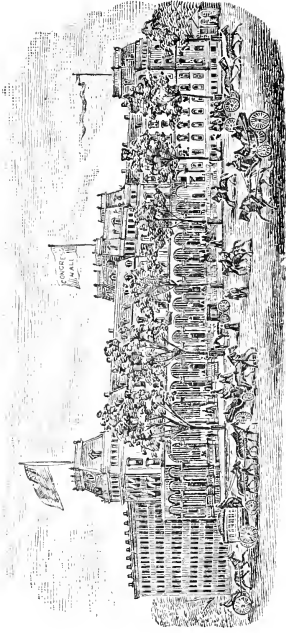 CONGRE
HALL